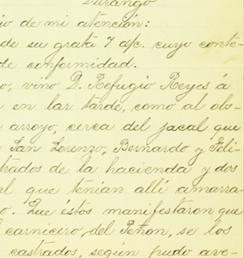 Durango
io de mi atención:
de su grata 7 d/c. cuyo conte-
de conformidad.
o, vino D. Refugio Reyes á
en lar tarde, como al obs-
arroyo, cerca del jacal que
San Lorenzo, Bernardo y Feli-
trados de la hacienda y dos
al que tenian alli amarra-
o. Que éstos manifestaron que
carnicero del Peñon, se los
castrados, según pudo ave-